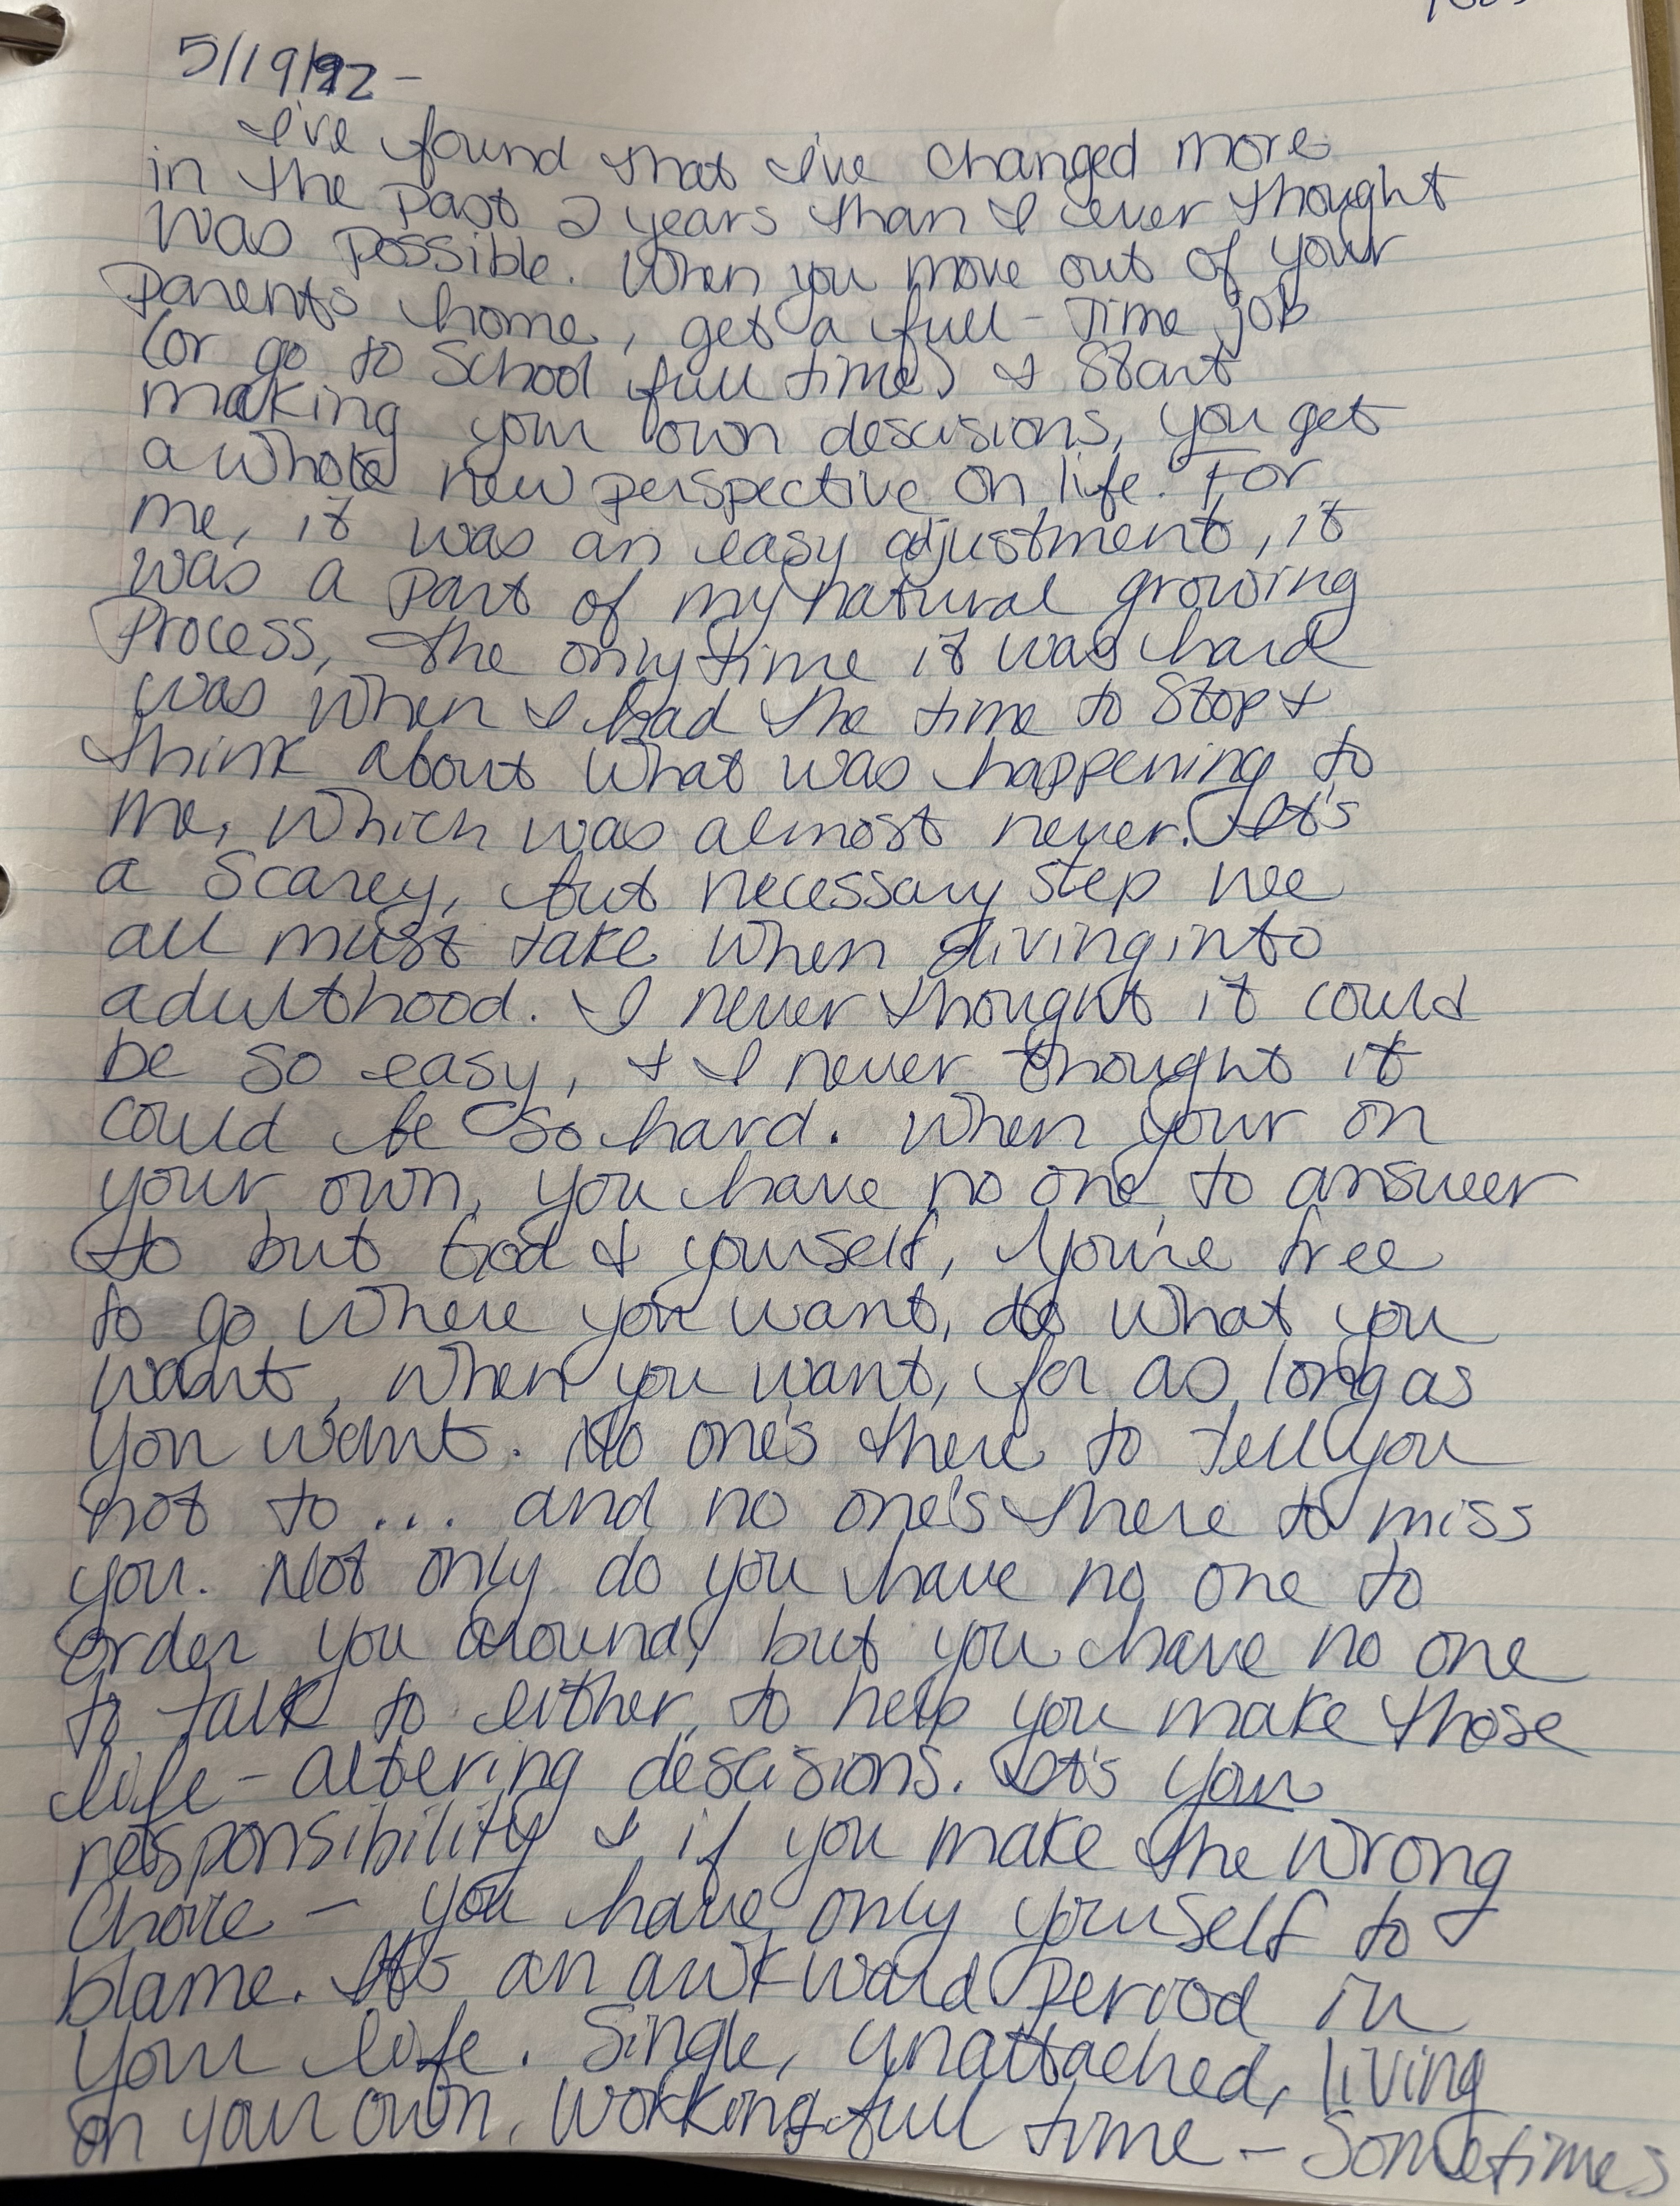 5/19/92 -
I've found that I've changed more
in the past 2 years than I ever thought
was possible. When you move out of your
parents home, get a full-time job
(or go to school full time) & start
making your own descisions, you get
a whole new perspective on life. For
me, it was an easy adjustment, it
was a part of my natural growing
process, the only time it was hard
was when I had the time to stop &
think about what was happening to
me, which was almost never. It's
a scarey, but necessary step we
all must take when diving into
adulthood. I never thought it could
be so easy, & I never thought it
could be so hard. When your on
your own, you have no one to answer
to but God & yourself, you're free
to go where you want, do what you
want, when you want, for as long as
you want. No one's there to tell you
not to... and no one's there to miss
you. Not only do you have no one to
order you around, but you have no one
to talk to either, to help you make those
life-altering descisions. It's your
responsibility & if you make the wrong
choice - you have only yourself to
blame. It's an awkward period in
your life. Single, unattached, living
on your own, working full time - Sometimes